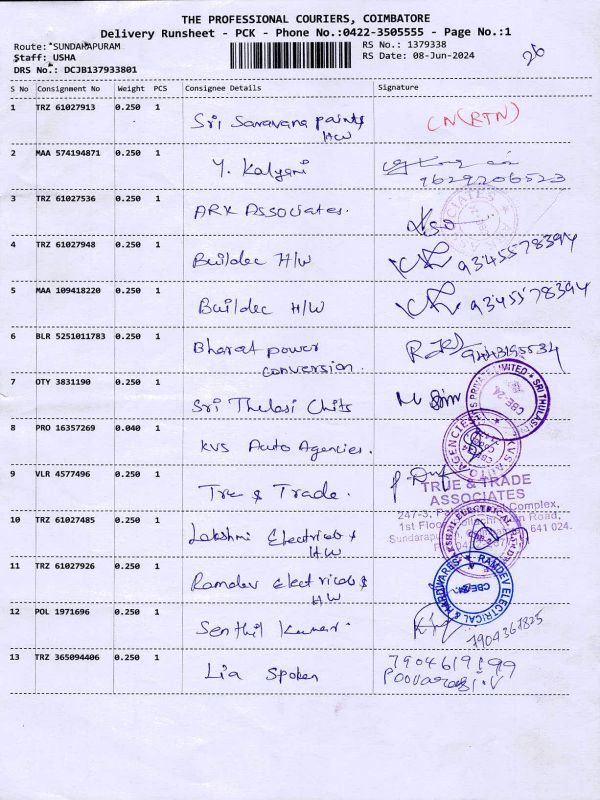 THE PROFESSIONAL COURIERS, COIMBATORE
Delivery Runsheet - PCK - Phone No.:0422-3505555 - Page No.:1
Route: *SUNDARAPURAM
Staff: USHA
DRS No.: DCJB137933801
RS No.: 1379338
RS Date: 08-Jun-2024
26
S No Consignment No Weight PCS Consignee Details Signature
1 TRZ 61027913 0.250 1 Sri Saravana paints H/W CN(RTN)
2 MAA 574194871 0.250 1 Y. Kalyani
9629206523
3 TRZ 61027536 0.250 1 ARK Associates.
4 TRZ 61027948 0.250 1 Buildec H/W 9345578394
5 MAA 109418220 0.250 1 Buildec H/W 9345578394
6 BLR 5251011783 0.250 1 Bharat power conversion. 9443195534
7 OTY 3831190 0.250 1 Sri Thulasi Chits
PRIVATE LIMITED * SRI THULASI
CBE-24
8 PRO 16357269 0.040 1 KVS Auto Agencies.
KVS AUTO AGENCIES
9 VLR 4577496 0.250 1 True & Trade.
TRUE & TRADE
ASSOCIATES
247-3, Complex,
1st Floor, Road,
Sundarapu 641 024.
10 TRZ 61027485 0.250 1 Lakshmi Electricals & H/W
11 TRZ 61027926 0.250 1 Ramdev Electricals & H/W
RAMDEV ELECTRICAL & HARDWARES
CBE-24.
12 POL 1971696 0.250 1 Senthil Kumar. 7904367825
13 TRZ 365094406 0.250 1 Lia Spoken 7904619199
Poovarasi.V